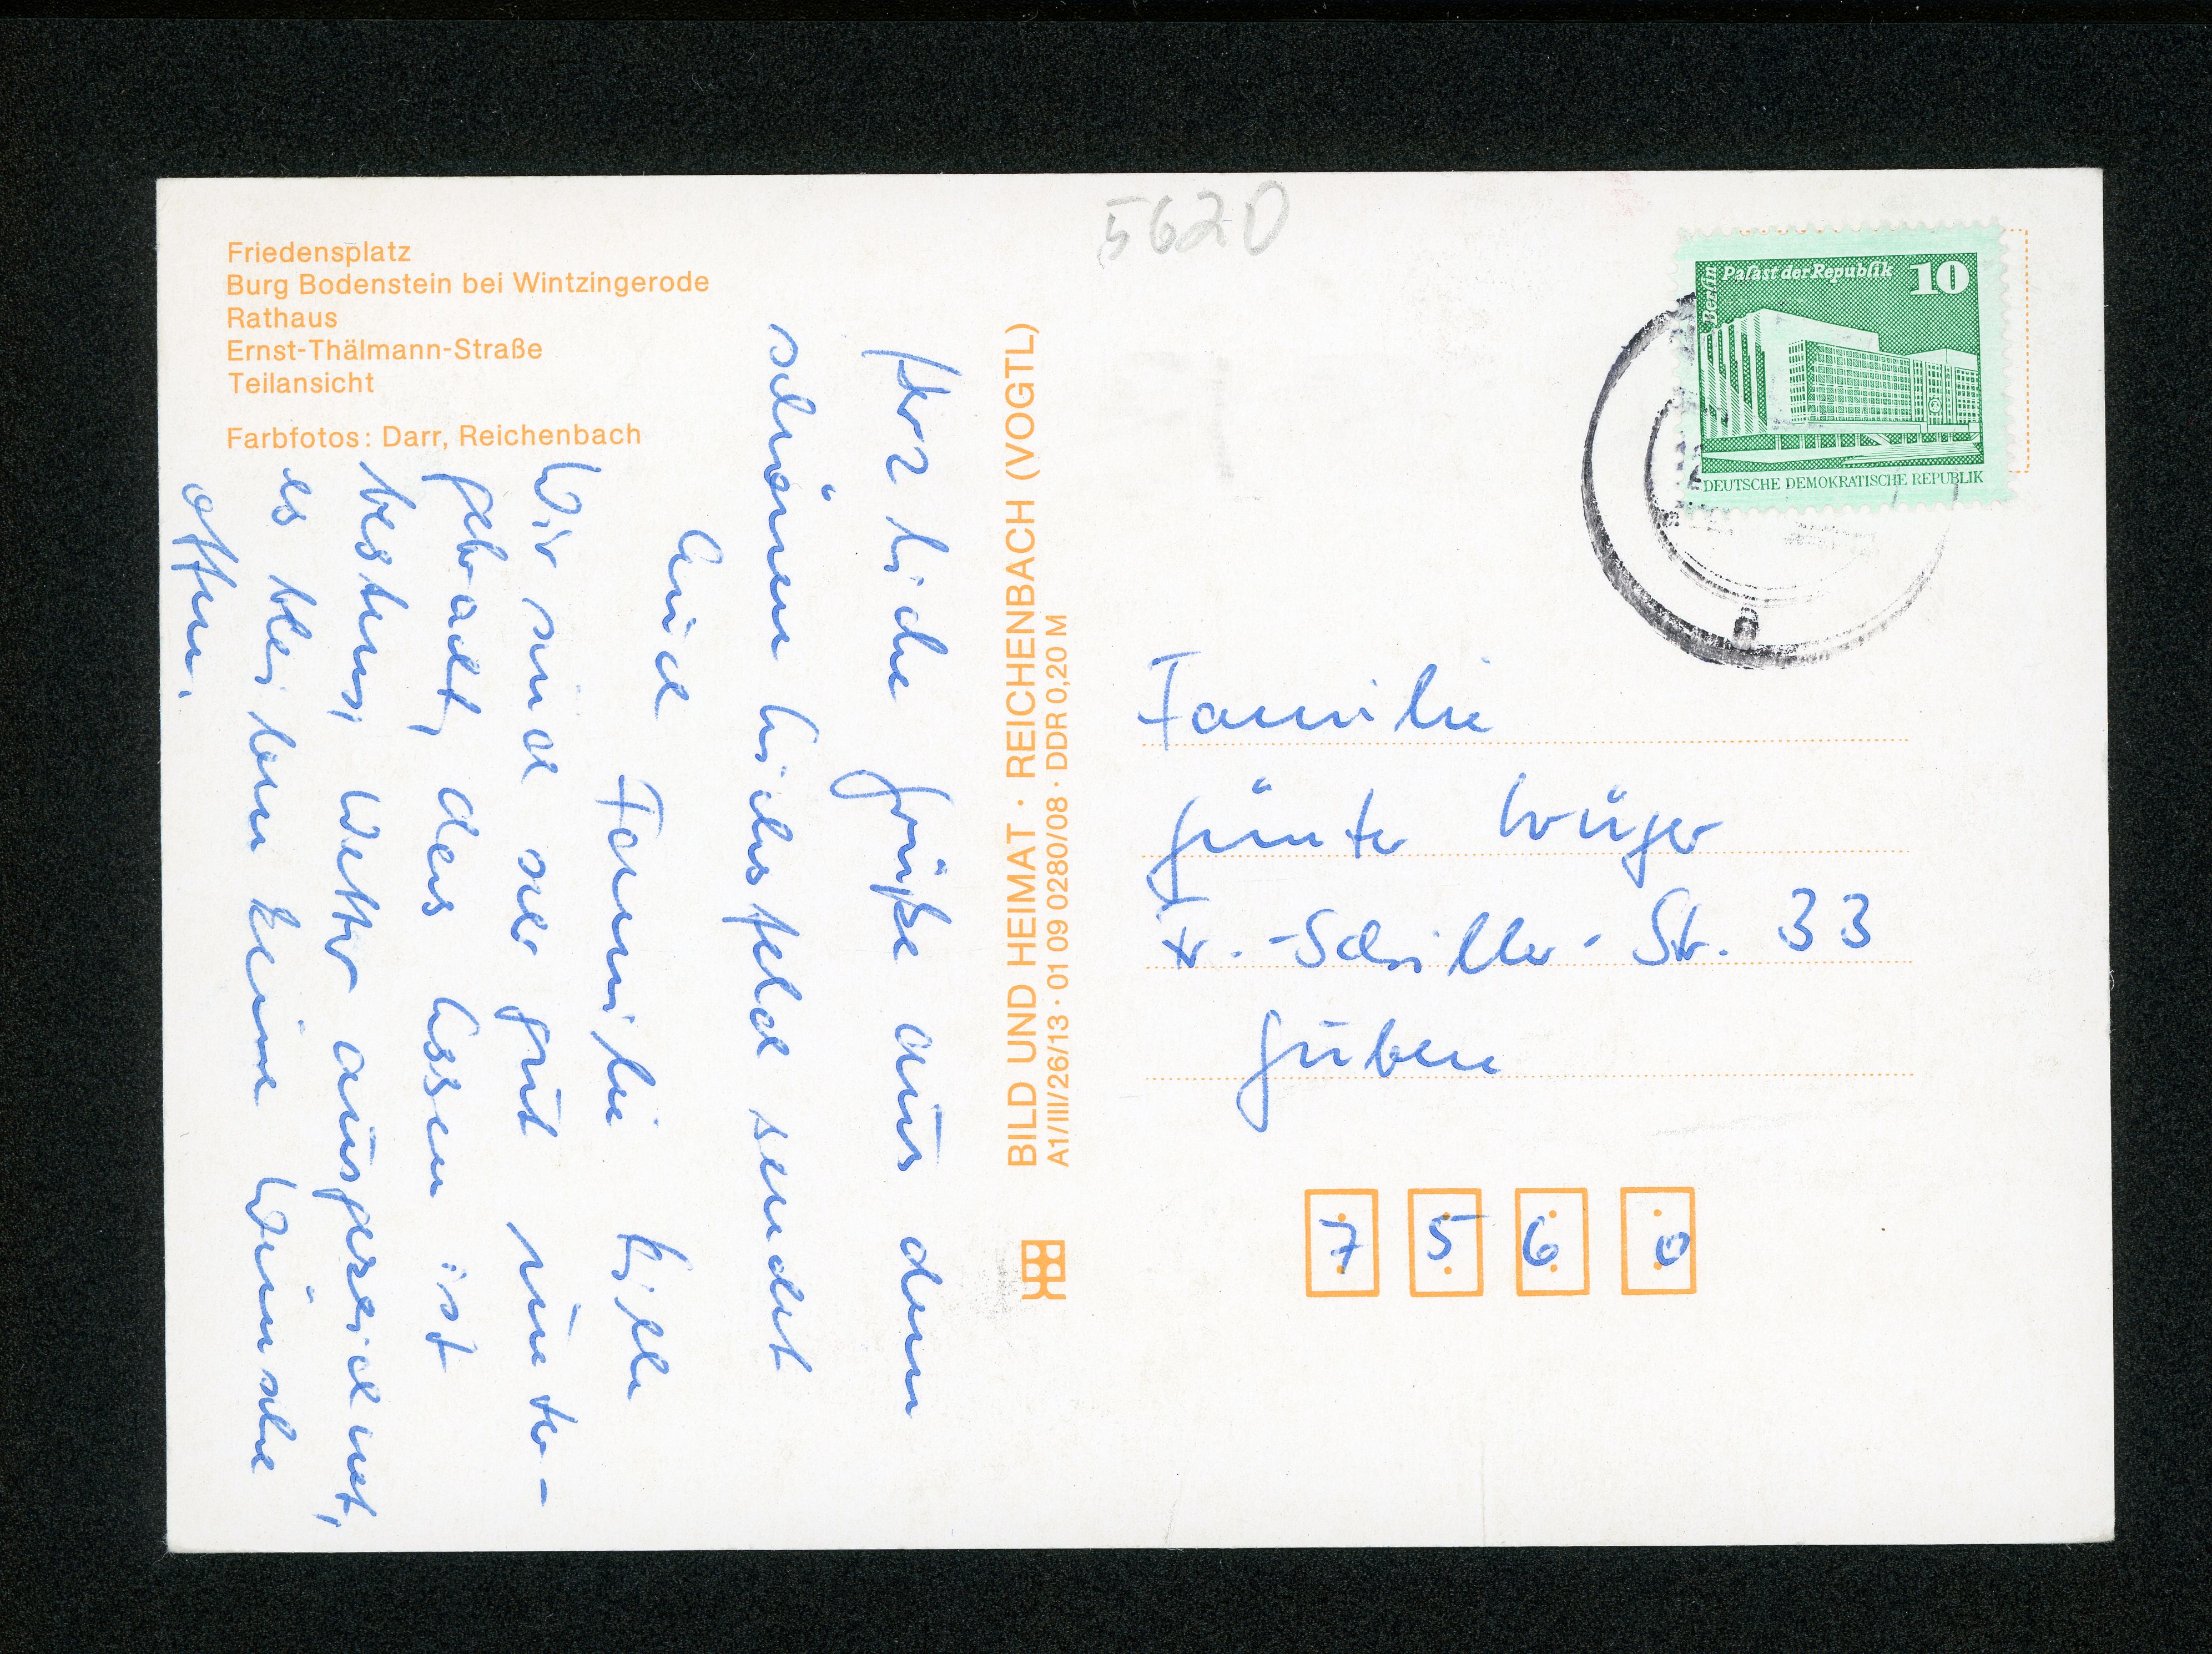 Friedensplatz
Burg Bodenstein bei Wintzingerode
Rathaus
Ernst-Thälmann-Straße
Teilansicht
Farbfotos: Darr, Reichenbach
Herzliche Grüße aus dem
schönen Eichsfeld sendet
Familie
Wir sind ser gut unter-
gebracht, das Essen ist
bestens, Wetter ausgezeichnet,
es bleiben keine Wünsche
offen.
BILD UND HEIMAT · REICHENBACH (VOGTL)
A1/III/26/13 · 01 09 0280/08 · DDR 0,20 M
5620
Berlin
Palast der Republik
10
DEUTSCHE DEMOKRATISCHE REPUBLIK
Familie
Günter
-Schiller-Str. 33
Guben
7 5 6 0